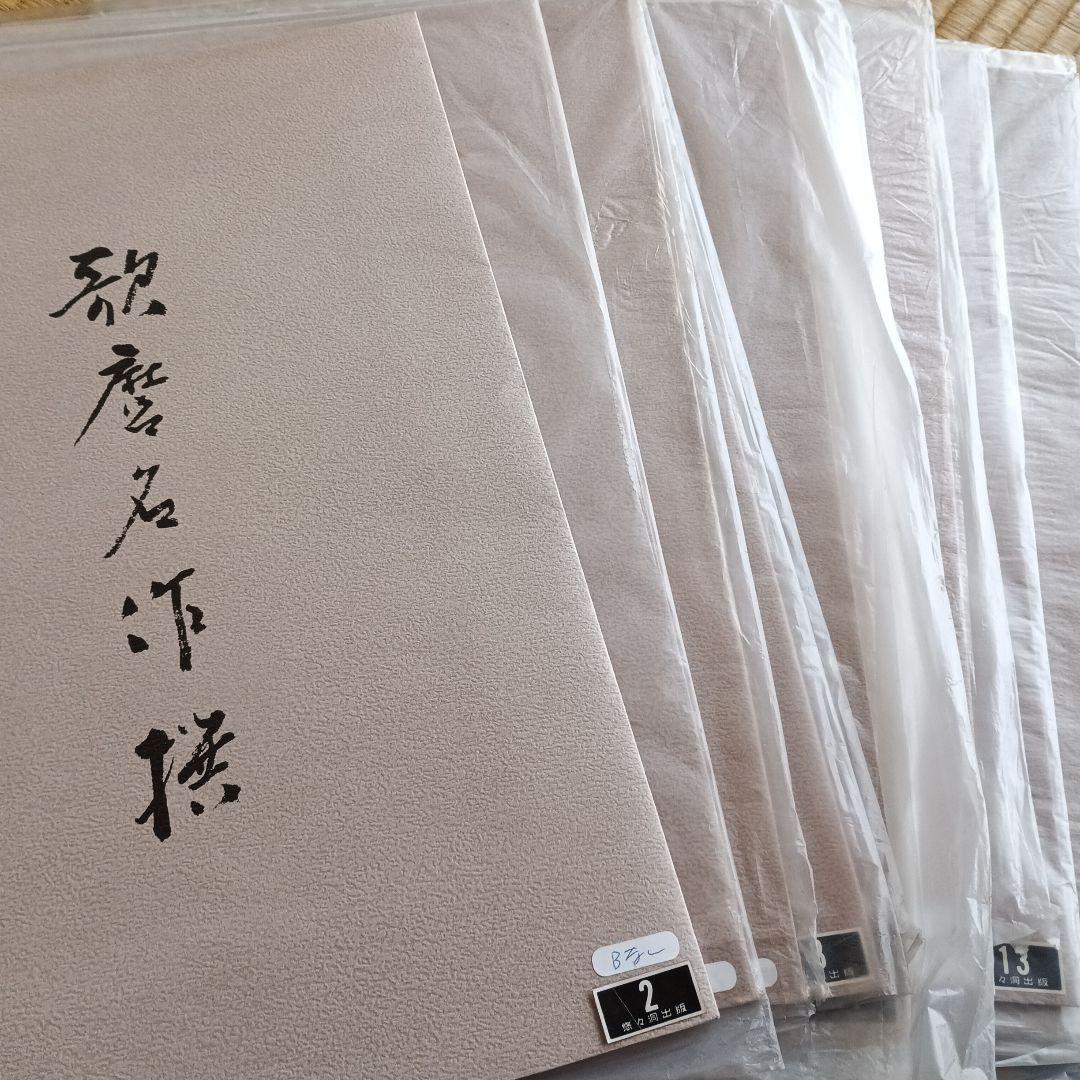 歌麿名作撰
Bなし
2
悠々洞出版
3
出版
13
々洞出版